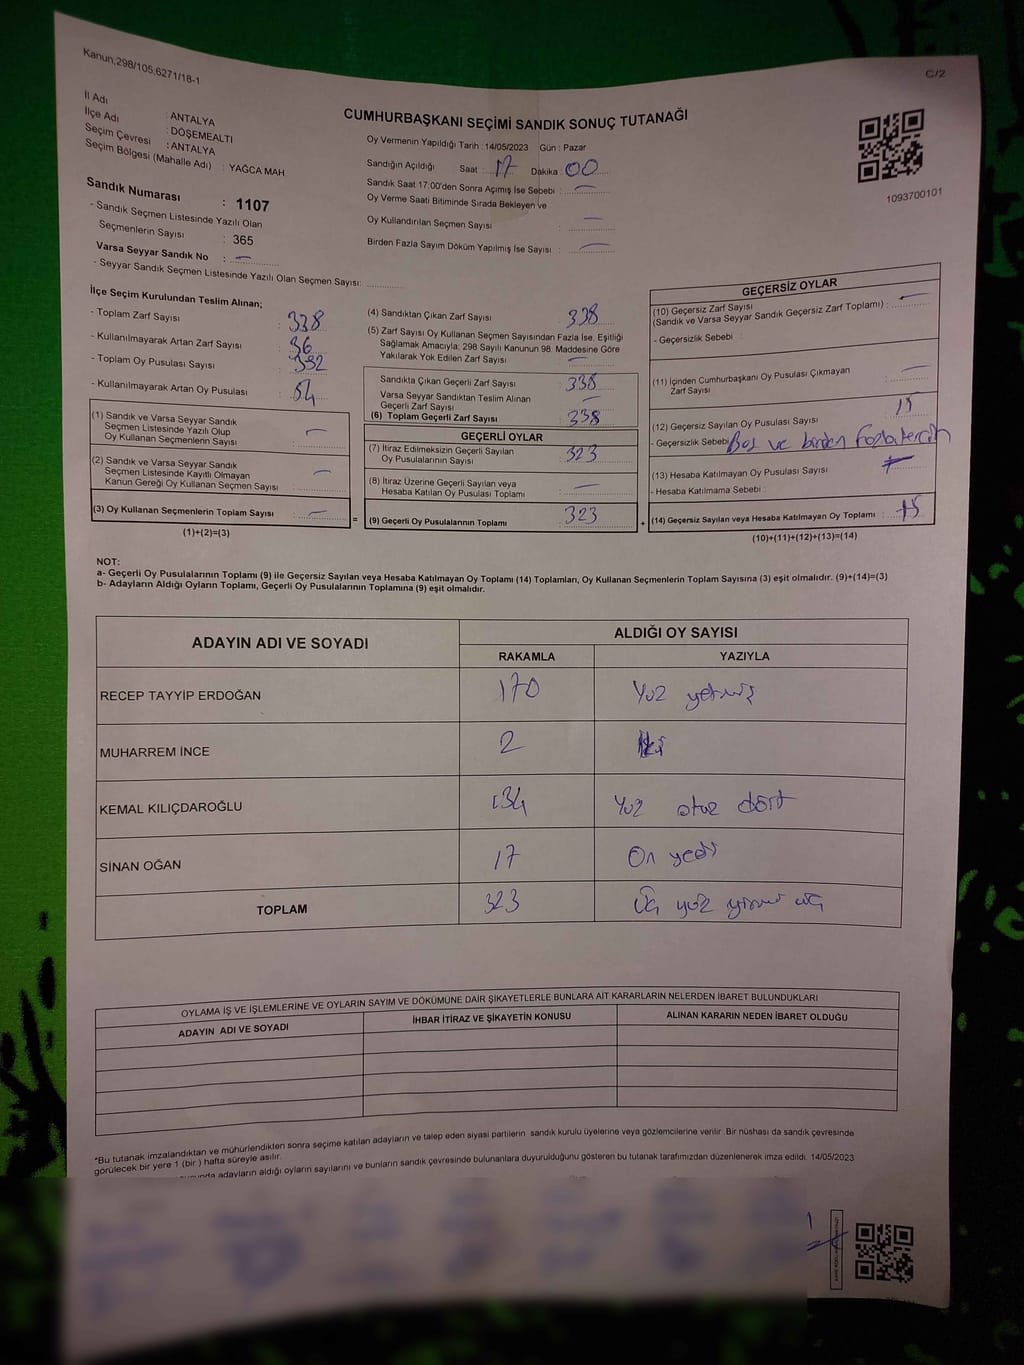 Kanun;298/105;6271/18-1
C/2
CUMHURBAŞKANI SEÇİMİ SANDIK SONUÇ TUTANAĞI
İl Adı : ANTALYA
İlçe Adı : DÖŞEMEALTI
Seçim Çevresi : ANTALYA
Seçim Bölgesi (Mahalle Adı) : YAĞCA MAH
Sandık Numarası : 1107
- Sandık Seçmen Listesinde Yazılı Olan
Seçmenlerin Sayısı : 365
Varsa Seyyar Sandık No : —
- Seyyar Sandık Seçmen Listesinde Yazılı Olan Seçmen Sayısı:
Oy Vermenin Yapıldığı Tarih : 14/05/2023 Gün : Pazar
Sandığın Açıldığı Saat : 17 Dakika : 00
Sandık Saat 17:00'den Sonra Açımış İse Sebebi : —
Oy Verme Saati Bitiminde Sırada Bekleyen ve
Oy Kullandırılan Seçmen Sayısı : —
Birden Fazla Sayım Döküm Yapılmış İse Sayısı : —
1093700101
İlçe Seçim Kurulundan Teslim Alınan;
- Toplam Zarf Sayısı : 338
- Kullanılmayarak Artan Zarf Sayısı : 36
- Toplam Oy Pusulası Sayısı : 392
- Kullanılmayarak Artan Oy Pusulası : 54
(1) Sandık ve Varsa Seyyar Sandık
Seçmen Listesinde Yazılı Olup
Oy Kullanan Seçmenlerin Sayısı : —
(2) Sandık ve Varsa Seyyar Sandık
Seçmen Listesinde Kayıtlı Olmayan
Kanun Gereği Oy Kullanan Seçmen Sayısı : —
(3) Oy Kullanan Seçmenlerin Toplam Sayısı : —
(1)+(2)=(3)
=
(4) Sandıktan Çıkan Zarf Sayısı : 338
(5) Zarf Sayısı Oy Kullanan Seçmen Sayısından Fazla İse, Eşitliği
Sağlamak Amacıyla; 298 Sayılı Kanunun 98. Maddesine Göre
Yakılarak Yok Edilen Zarf Sayısı : —
Sandıkta Çıkan Geçerli Zarf Sayısı : 338
Varsa Seyyar Sandıktan Teslim Alınan
Geçerli Zarf Sayısı : —
(6) Toplam Geçerli Zarf Sayısı : 338
GEÇERLİ OYLAR
(7) İtiraz Edilmeksizin Geçerli Sayılan
Oy Pusulalarının Sayısı : 323
(8) İtiraz Üzerine Geçerli Sayılan veya
Hesaba Katılan Oy Pusulası Toplamı : —
(9) Geçerli Oy Pusulalarının Toplamı : 323
+
GEÇERSİZ OYLAR
(10) Geçersiz Zarf Sayısı
(Sandık ve Varsa Seyyar Sandık Geçersiz Zarf Toplamı) : —
- Geçersizlik Sebebi :
(11) İçinden Cumhurbaşkanı Oy Pusulası Çıkmayan
Zarf Sayısı : —
(12) Geçersiz Sayılan Oy Pusulası Sayısı : 15
- Geçersizlik Sebebi Boş ve birden fazla tercih
(13) Hesaba Katılmayan Oy Pusulası Sayısı :
- Hesaba Katılmama Sebebi :
(14) Geçersiz Sayılan veya Hesaba Katılmayan Oy Toplamı : 15
(10)+(11)+(12)+(13)=(14)
NOT:
a- Geçerli Oy Pusulalarının Toplamı (9) ile Geçersiz Sayılan veya Hesaba Katılmayan Oy Toplamı (14) Toplamları, Oy Kullanan Seçmenlerin Toplam Sayısına (3) eşit olmalıdır. (9)+(14)=(3)
b- Adayların Aldığı Oyların Toplamı, Geçerli Oy Pusulalarının Toplamına (9) eşit olmalıdır.
ADAYIN ADI VE SOYADI
ALDIĞI OY SAYISI
RAKAMLA YAZIYLA
RECEP TAYYİP ERDOĞAN 170 Yüz yetmiş
MUHARREM İNCE 2 iki
KEMAL KILIÇDAROĞLU 134 Yüz otuz dört
SİNAN OĞAN 17 On yedi
TOPLAM 323 Üç yüz yirmi üç
OYLAMA İŞ VE İŞLEMLERİNE VE OYLARIN SAYIM VE DÖKÜMÜNE DAİR ŞİKAYETLERLE BUNLARA AİT KARARLARIN NELERDEN İBARET BULUNDUKLARI
ADAYIN ADI VE SOYADI İHBAR İTİRAZ VE ŞİKAYETİN KONUSU ALINAN KARARIN NEDEN İBARET OLDUĞU
*Bu tutanak imzalandıktan ve mühürlendikten sonra seçime katılan adayların ve talep eden siyasi partilerin sandık kurulu üyelerine veya gözlemcilerine verilir. Bir nüshası da sandık çevresinde
görülecek bir yere 1 (bir ) hafta süreyle asılır.
adayların aldığı oyların sayılarını ve bunların sandık çevresinde bulunanlara duyurulduğunu gösteren bu tutanak tarafımızdan düzenlenerek imza edildi. 14/05/2023